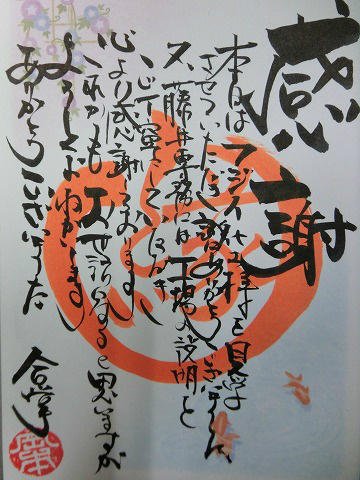 感謝
本日はフジイ化工様を見学
させていただき誠にありがとうございました
又、藤井専務には工場の説明と
して頂き
心より感謝しております
これからもお世話になると思いますが
よろしくおねがいします
ありがとうございました
合掌